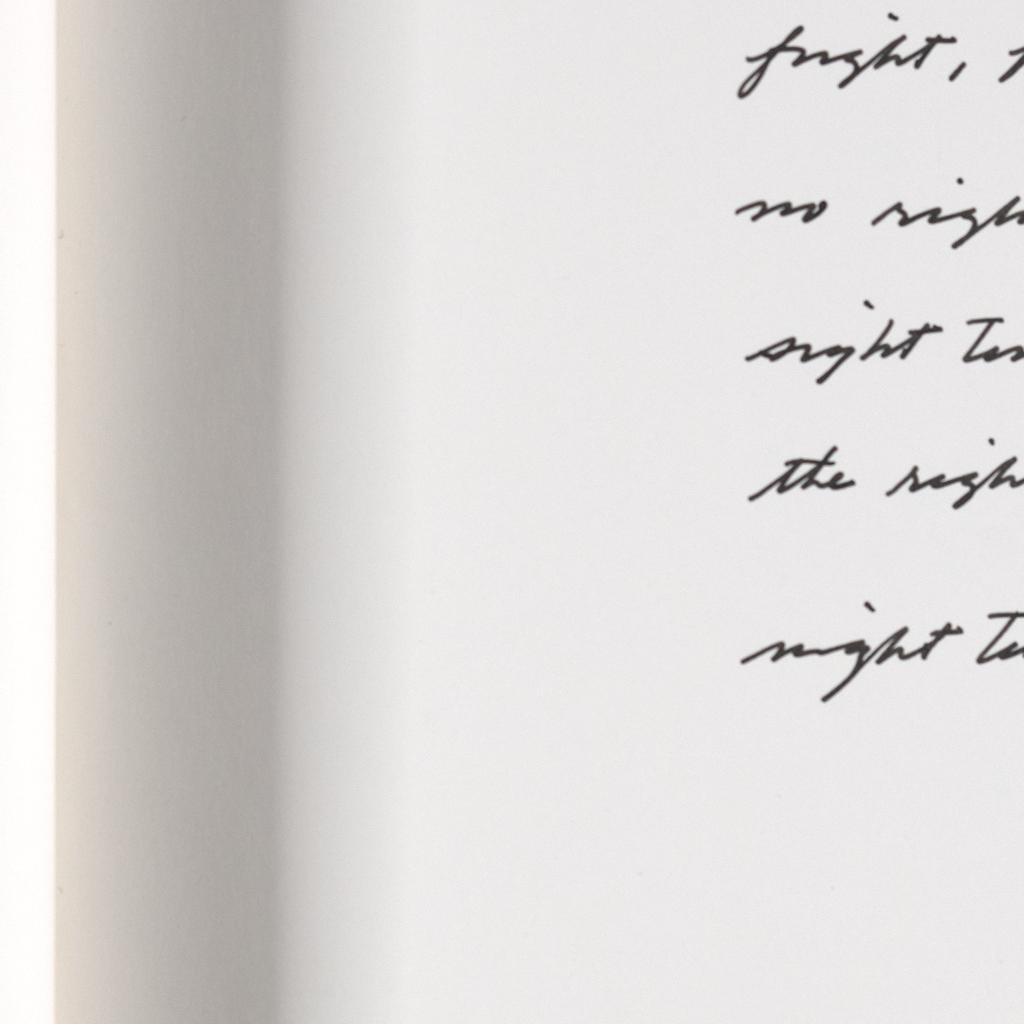 fright,
no righ
sight
the righ
night